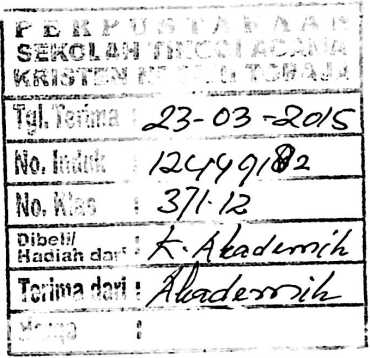 PERPUSTAKAAN
SEKOLAH TINGGI AGAMA
KRISTEN TORAJA
Tgl. Terima : 23-03-2015
No. Induk : 12449182
No. Klas : 371.12
Dibeli/
Hadiah dari : K. Akademik
Terima dari : Akademik